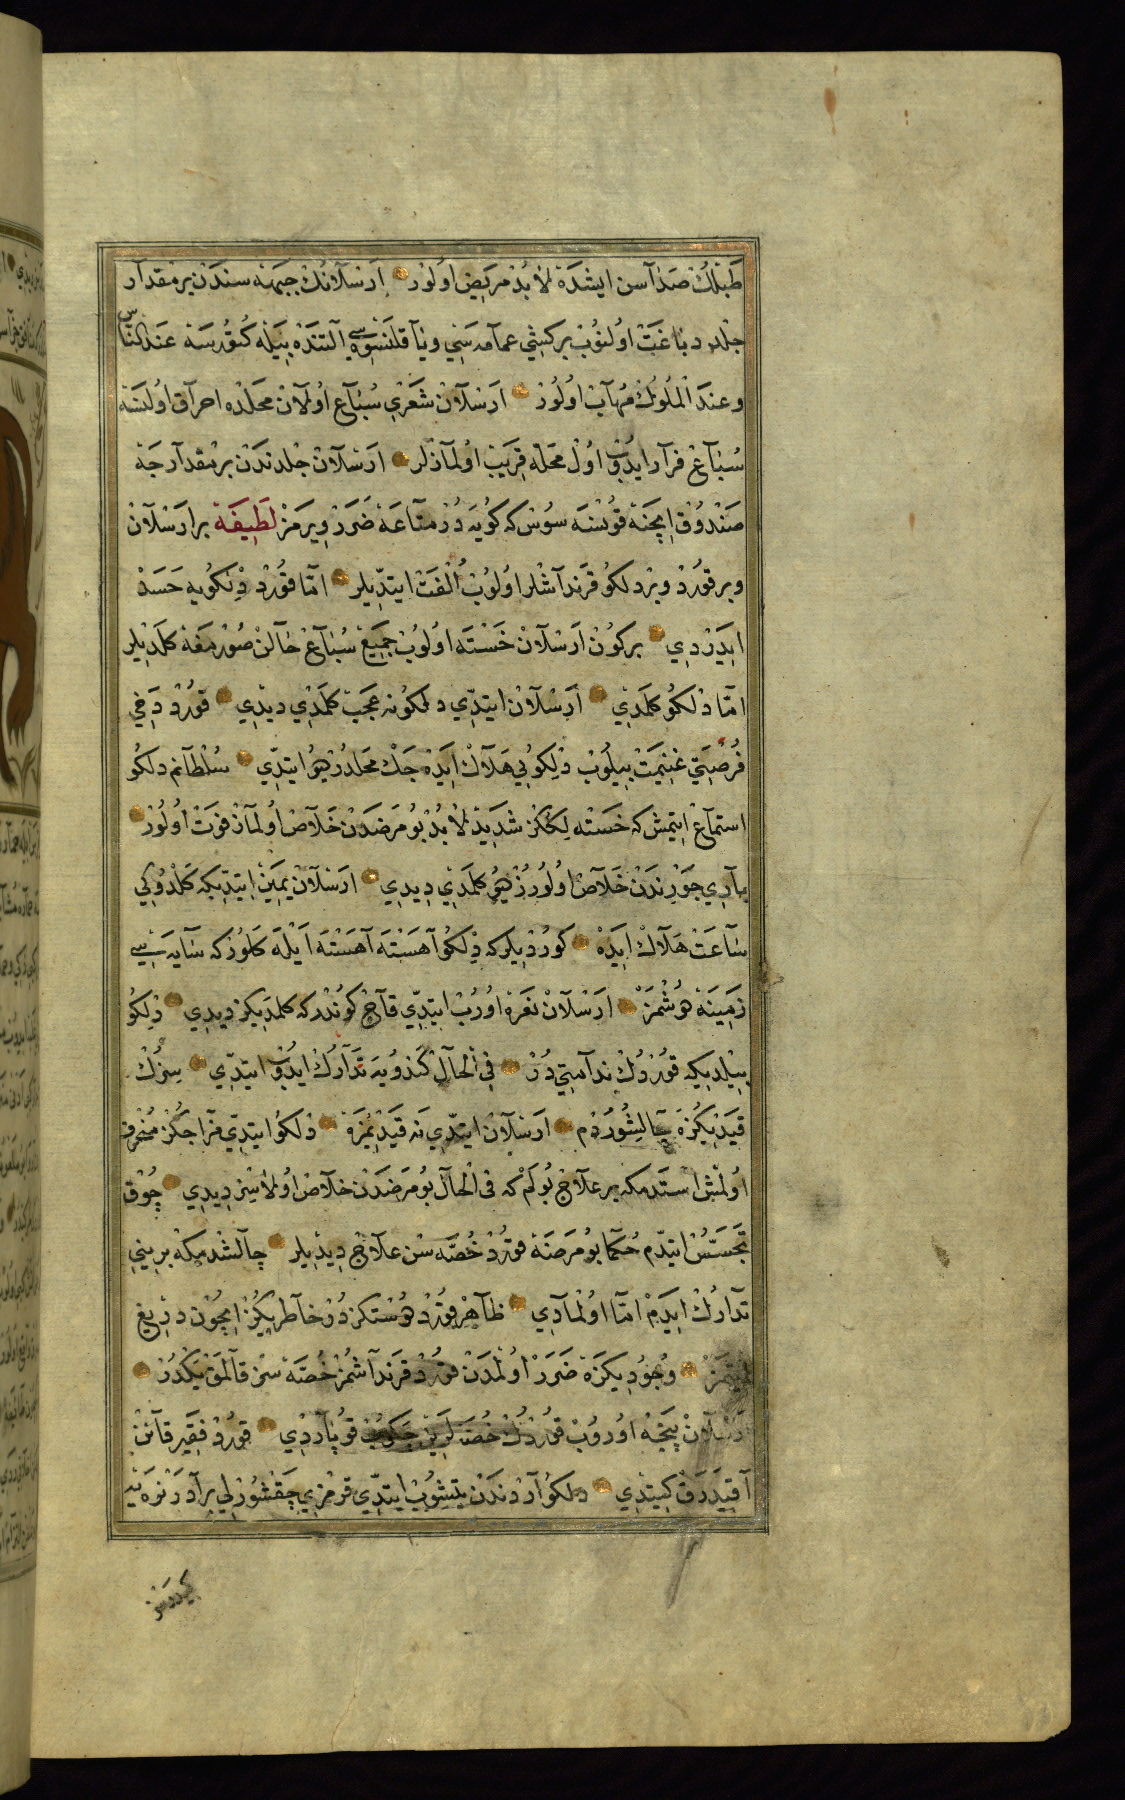 طَبْلُكْ صَدَاسن ايشدَهْ لاٰبُدْ مَرِيضْ اُولُور ارَسْلاٰنُكْ جِبْهَهْ سندَنْ برمقدار
جلد دباغَتْ اولنوُبْ بركشِي عمامه سَنِي ويا قلَنسُوَه سِي آلتندَهْ بيله كتُورسَهْ عندَ الناس
وعندَ الْمُلوُكْ مُهابْ اُولُورْ ارَسْلاٰنْ شَعَرِي سُبَاعْ اوُلاٰنْ محَلدْه احراق اولنسَهْ
سُبَاعْ فرار ايدُوبْ اوُلْ محَلهْ قِريَبْ اولمازلَر ارَسْلاٰنْ جلدندَنْ برمقدارجَهْ
صَندُوقْ ايچنَهْ قوُنسَه سوُس كه كوُيَه دُرْ متاعَهْ ضَرَرْ ويرمَزْ لَطِيفَهْ برارَسْلاٰنْ
وبرقوُردْ وبردلكوُ قَرَنداشلر اوُلوُبْ اُلْفَتْ ايتدِّيلر امّا قُورْدْ دِلْكوُيه حَسَدْ
ايدَرْدِي بركوُنْ ارَسْلاٰنْ خَستَه اوُلوُبْ جَمِيعْ سُبَاعْ حالنْ صُورْمَغَهْ كلدِيلر
امّا دْلكوُ كلمَدِي ارَسْلاٰنْ ايتدِّي دلكوُ نه عَجَبْ كلمَدِي ديدِي قوُرْدْ دَخِي
فُرْصَتِي غَنِيمَتْ بيلوُبْ دْلكوُيي هَلاٰكْ ايدَهْ جَكْ محَلدُرْ ديُو ايتدِّي سُلْطانم دلكُو
استماعْ ايتمِش كه خستَه لِككز شدَيِدْ لاٰبُدْ بُو مَرَضدَنْ خَلاٰصْ اوُلمازْ فَوتْ اوُلوُرْ
باري جَوْرِندَنْ خَلاٰصْ اوُلوُرُزْ ديُو كلمَدِي ديدِي ارَسْلاٰنْ يَمِينْ ايتدِيكه كَلْدوُكِي
ساعَتْ هَلاٰكْ ايدَهْ كورْديلر كه دْلكوُ آهَستَه آهَستَه ايلَه كَلوُرْ كه سايَه سِي
زَمِينَهْ دوُشْمَزْ ارَسْلاٰنْ نَعَرَهْ اوُرُبْ ايتدِّي قاچ كوُندركه كلمَديكز ديدِي دْلكوُ
بيْلدِيكه قوُرْدُكْ نَدامتي دُرْ فِي الْحالْ كَندوُيَه تَدارُكْ ايدُبْ ايتدِّي سِزُكْ
قَيْدِيكُزَهْ چالِشُورُدم ارَسْلاٰنْ ايتدِّي نَه قَيْدِيمزَهْ دْلكوُ ايتدِّي مزاجكز منحرف
اوُلمْش استَدمكه برعلاٰجْ بوُلَمْ كه فى الْحالْ بوُ مَرَضدَنْ خلاٰصْ اوُلاٰسِز ديدِي چُوقْ
تَجَسّسْ ايتدِّم حُكَما بوُ مَرَضهْ قورْدْ خُصْيَه سنْ علاٰجْ ديدِيلر چالشدمكه برينى
تَدارُكْ ايدَمْ امّا اوُلمادِي ظاهرْ قوُردْ دوُستكز دُرْ خاطريكُزْ ايچُونْ دِريغ
ايتمَزْ وُجُودِيكزَهْ ضَرَرْ اوُلمدَنْ قوُردْ قَرَنداشمُزْ خُصْيَهْ سزْ قالمَقْ يَكْدُرْ
ارَسْلاٰنْ پنچَهْ اوُروُبْ قوُردُكْ خُصْيَه لَرِينْ چَكوُبْ قوُپاردِي قوُردْ فَقِير قانىْ
آقيدَرَقْ كيتدِي دلكوُ آردندَنْ يتشوُبْ ايتدِّي قرمزي چَقْشورْلي برادَرْ نَرَيَه
كيدرسز